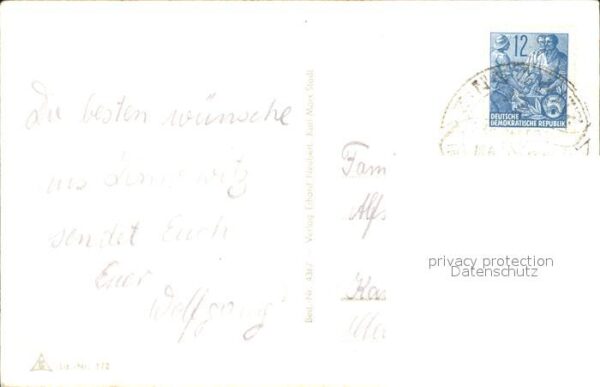 Die besten wünsche
aus
sendet Euch
Euer
Wolfgang
Best.-Nr. 4367 Verlag Erhard Neubert, Karl-Marx-Stadt
12
DEUTSCHE
DEMOKRATISCHE REPUBLIK
5
Fami
Alfr
privacy protection
Datenschutz
Ka
Liz.-Nr. 172